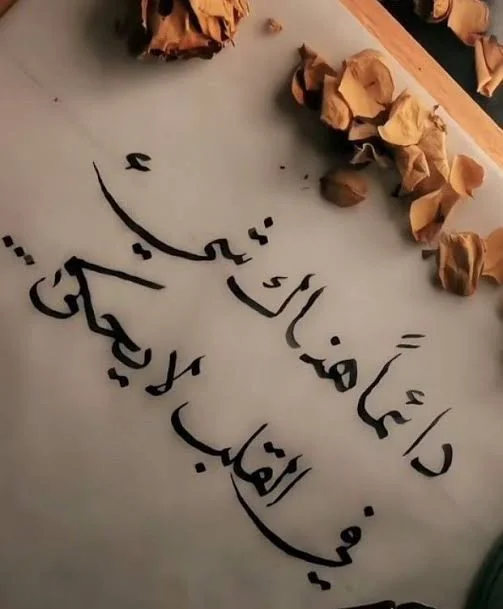 دائماً هناك شيء
في القلب لا يحكى...